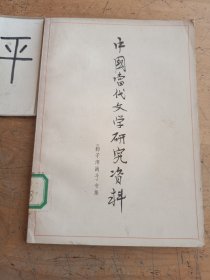 平
中國當代文学研究资料